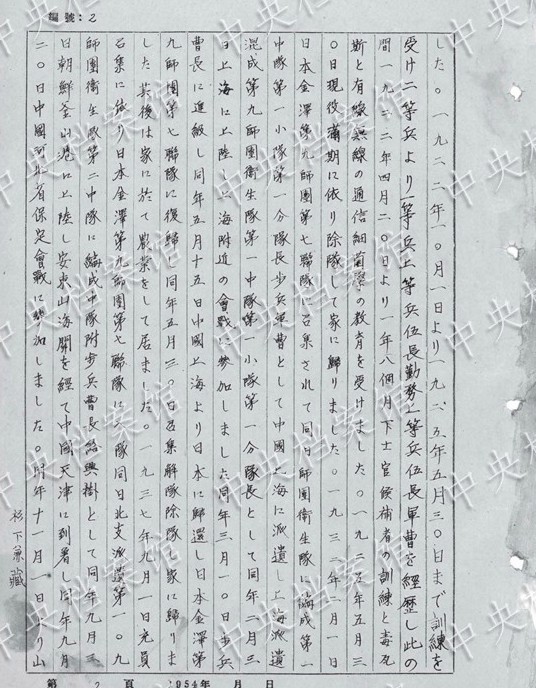 編號：2
した。一九二二年一〇月一日より一九二五年五月三〇日まで訓練を
受け二等兵より一等兵上等兵伍長勤務上等兵伍長軍曹を經歷し此の
間一九二二年四月二〇日より一年八個月下士官候補者の訓練と毒瓦
斯と有線無線の通信細菌學の教育を受けました。一九二五年五月三
〇日現役滿期に依り除隊して家に歸りました。一九三二年二月一日
日本金澤第九師團第七聯隊に召集されて同日師團衛生隊に編成第一
中隊第一小隊第一分隊長步兵軍曹として中國上海に派遣し上海派遣
混成第九師團衛生隊第一中隊第一小隊第一分隊長として同年二月三
日上海に上陸し上海附近の會戰に參加しました同年三月一〇日步兵
曹長に進級し同年五月十五日中國上海より日本に歸還し日本金澤第
九師團第七聯隊に復歸し同年五月三〇日召集解隊除隊し家に歸りま
した其後は家に於て農業をして居ました。一九三七年九月一日充員
召集に依り日本金澤第九師團第七聯隊に入隊同日北支派遣第一〇九
師團衛生隊第二中隊に編成中隊附步兵曹長給與掛として同年九月三
日朝鮮釜山港に上陸し安東山海關を經て中國天津に到著し同年九月
二〇日中國河北省保定會戰に參加しました。同年十一月一日より山
杉下兼藏
第 2 頁 1954年 月 日
中央档案馆